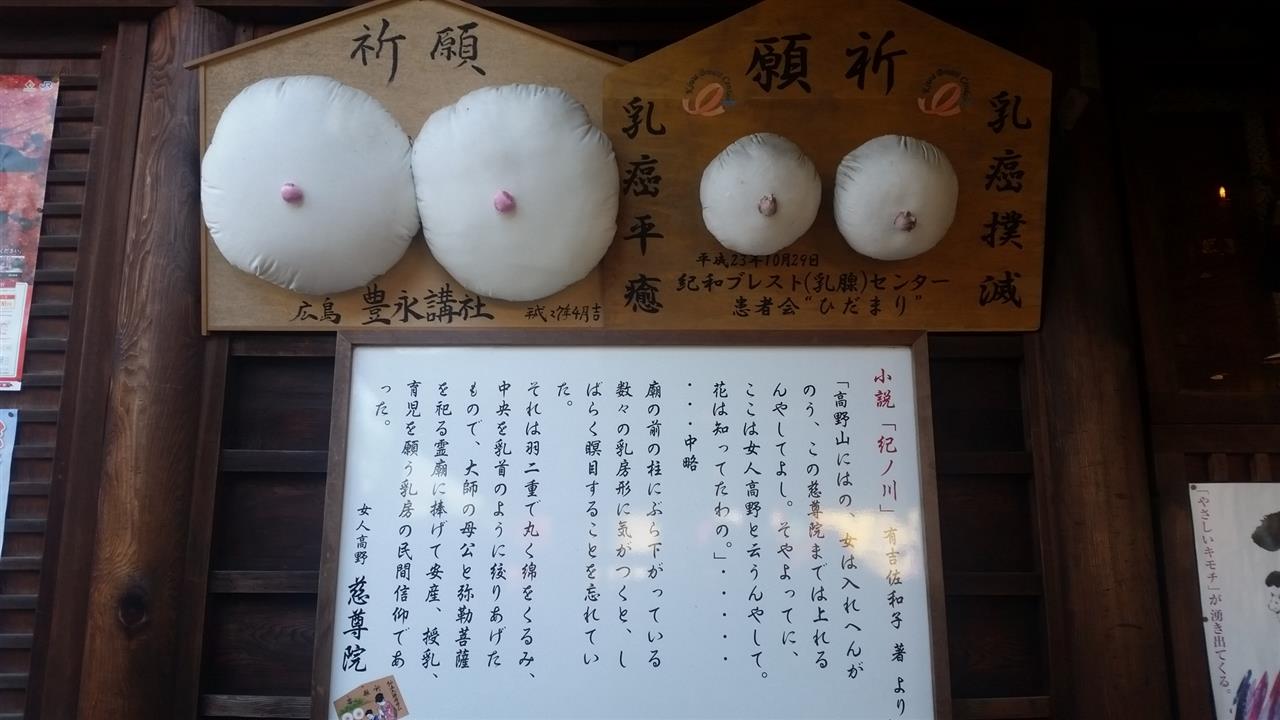 祈願
広島 豊永講社
平成27年4月吉
願祈
乳癌平癒
乳癌撲滅
平成23年10月29日
紀和ブレスト(乳腺)センター
患者会“ひだまり”
小説「紀ノ川」有吉佐和子 著 より
「高野山にはの、女は入れへんが
のう、この慈尊院までは上れる
んやしてよし。そやよってに、
ここは女人高野と云うんやして。
花は知ってたわの。」・・・・・
・・・中略
廟の前の柱にぶら下がっている
数々の乳房形に気がつくと、し
ばらく瞑目することを忘れてい
た。
それは羽二重で丸く綿をくるみ、
中央を乳首のように絞りあげた
もので、大師の母公と弥勒菩薩
を祀る霊廟に捧げて安産、授乳、
育児を願う乳房の民間信仰であ
った。
女人高野 慈尊院
「やさしいキモチ」が湧き出てくる。